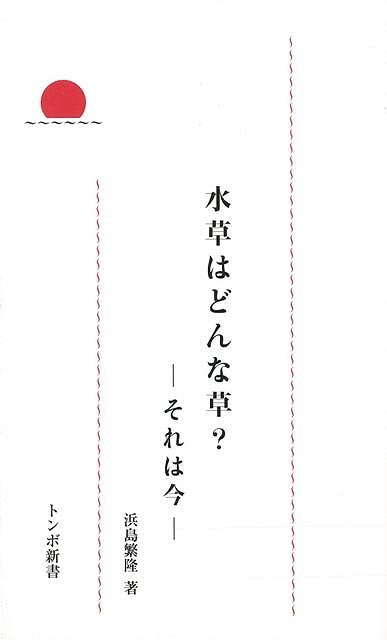 水草はどんな草?
―それは今―
浜島繁隆 著
トンボ新書